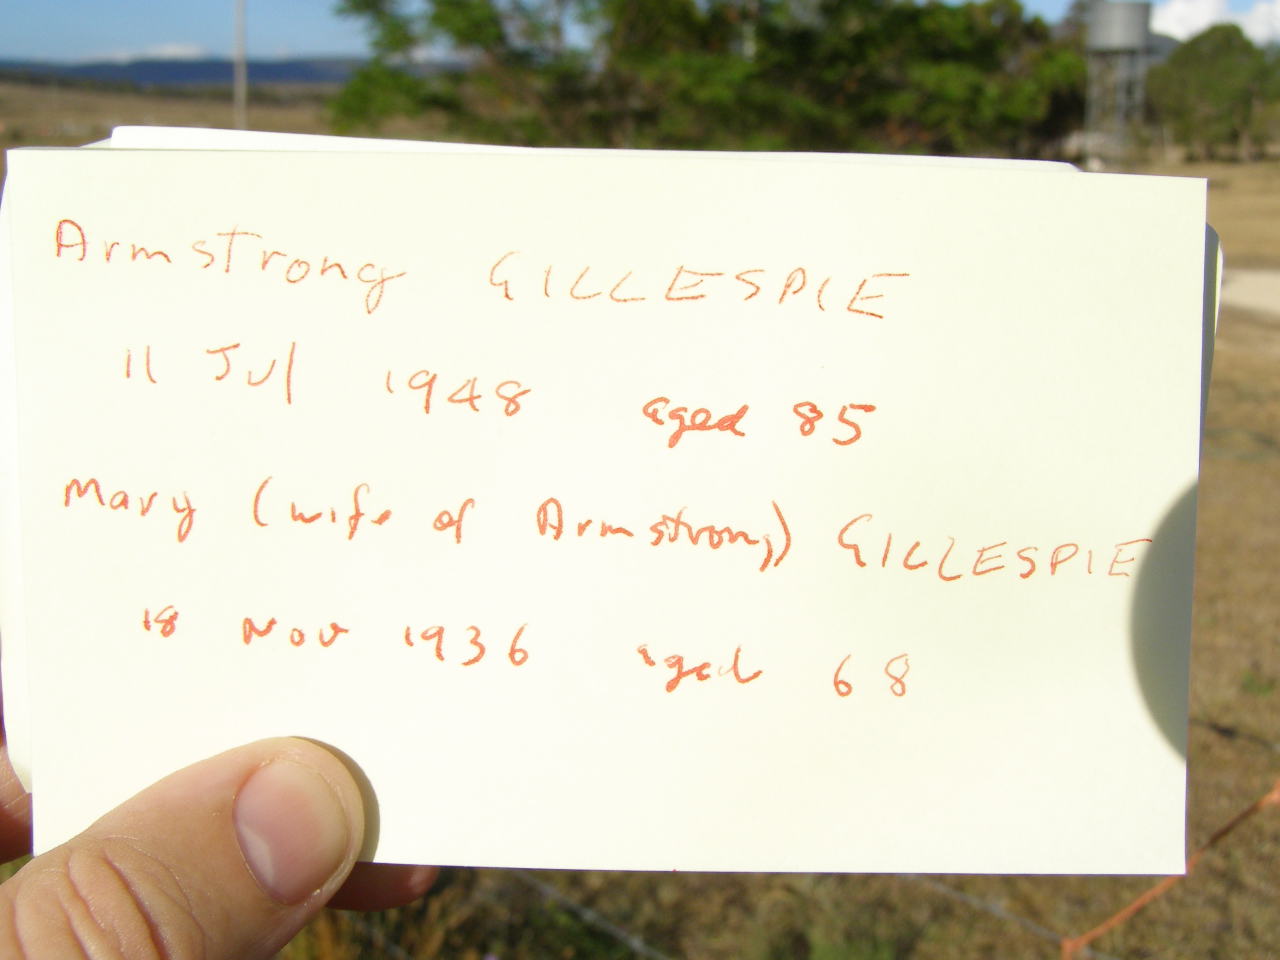 Armstrong GILLESPIE
11 Jul 1948 aged 85
Mary (wife of Armstrong) GILLESPIE
18 Nov 1936 aged 68